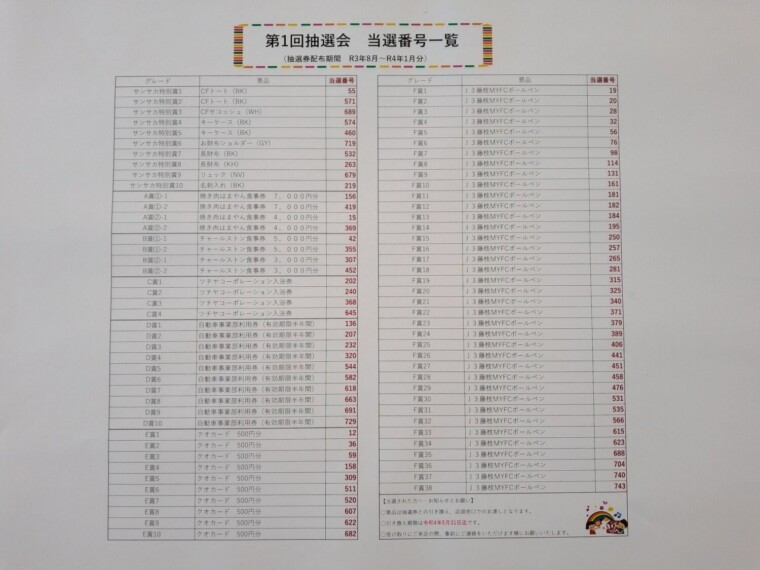 第1回抽選会　当選番号一覧
（抽選券配布期間　R3年8月～R4年1月分）
グレード 景品 当選番号
サンサカ特別賞1 CFトート（BK） 55
サンサカ特別賞2 CFトート（BK） 571
サンサカ特別賞3 CFサコッシュ（WH） 689
サンサカ特別賞4 キーケース（BK） 574
サンサカ特別賞5 キーケース（BK） 460
サンサカ特別賞6 お財布ショルダー（GY） 719
サンサカ特別賞7 長財布（BK） 532
サンサカ特別賞8 長財布（KH） 263
サンサカ特別賞9 リュック（NV） 679
サンサカ特別賞10 名刺入れ（BK） 219
A賞①-1 焼き肉はまやん食事券　7，000円分 156
A賞①-2 焼き肉はまやん食事券　7，000円分 419
A賞②-1 焼き肉はまやん食事券　4，000円分 15
A賞②-2 焼き肉はまやん食事券　4，000円分 369
B賞①-1 チャールストン食事券　5，000円分 42
B賞①-2 チャールストン食事券　5，000円分 355
B賞②-1 チャールストン食事券　3，000円分 307
B賞②-2 チャールストン食事券　3，000円分 452
C賞1 ツチヤコーポレーション入浴券 202
C賞2 ツチヤコーポレーション入浴券 240
C賞3 ツチヤコーポレーション入浴券 368
C賞4 ツチヤコーポレーション入浴券 645
D賞1 自動車事業部利用券（有効期限半年間） 136
D賞2 自動車事業部利用券（有効期限半年間） 207
D賞3 自動車事業部利用券（有効期限半年間） 232
D賞4 自動車事業部利用券（有効期限半年間） 320
D賞5 自動車事業部利用券（有効期限半年間） 544
D賞6 自動車事業部利用券（有効期限半年間） 582
D賞7 自動車事業部利用券（有効期限半年間） 618
D賞8 自動車事業部利用券（有効期限半年間） 663
D賞9 自動車事業部利用券（有効期限半年間） 691
D賞10 自動車事業部利用券（有効期限半年間） 729
E賞1 クオカード　500円分 12
E賞2 クオカード　500円分 36
E賞3 クオカード　500円分 59
E賞4 クオカード　500円分 158
E賞5 クオカード　500円分 309
E賞6 クオカード　500円分 511
E賞7 クオカード　500円分 520
E賞8 クオカード　500円分 607
E賞9 クオカード　500円分 622
E賞10 クオカード　500円分 682
グレード 景品 当選番号
F賞1 J3藤枝MYFCボールペン 19
F賞2 J3藤枝MYFCボールペン 20
F賞3 J3藤枝MYFCボールペン 28
F賞4 J3藤枝MYFCボールペン 32
F賞5 J3藤枝MYFCボールペン 56
F賞6 J3藤枝MYFCボールペン 76
F賞7 J3藤枝MYFCボールペン 98
F賞8 J3藤枝MYFCボールペン 114
F賞9 J3藤枝MYFCボールペン 131
F賞10 J3藤枝MYFCボールペン 161
F賞11 J3藤枝MYFCボールペン 181
F賞12 J3藤枝MYFCボールペン 182
F賞13 J3藤枝MYFCボールペン 184
F賞14 J3藤枝MYFCボールペン 195
F賞15 J3藤枝MYFCボールペン 250
F賞16 J3藤枝MYFCボールペン 257
F賞17 J3藤枝MYFCボールペン 265
F賞18 J3藤枝MYFCボールペン 281
F賞19 J3藤枝MYFCボールペン 315
F賞20 J3藤枝MYFCボールペン 325
F賞21 J3藤枝MYFCボールペン 340
F賞22 J3藤枝MYFCボールペン 371
F賞23 J3藤枝MYFCボールペン 379
F賞24 J3藤枝MYFCボールペン 389
F賞25 J3藤枝MYFCボールペン 406
F賞26 J3藤枝MYFCボールペン 441
F賞27 J3藤枝MYFCボールペン 451
F賞28 J3藤枝MYFCボールペン 458
F賞29 J3藤枝MYFCボールペン 476
F賞30 J3藤枝MYFCボールペン 531
F賞31 J3藤枝MYFCボールペン 535
F賞32 J3藤枝MYFCボールペン 566
F賞33 J3藤枝MYFCボールペン 615
F賞34 J3藤枝MYFCボールペン 623
F賞35 J3藤枝MYFCボールペン 688
F賞36 J3藤枝MYFCボールペン 704
F賞37 J3藤枝MYFCボールペン 740
F賞38 J3藤枝MYFCボールペン 743
【当選された方へ　お知らせとお願い】
○景品は抽選券との引き換え、店頭受けでのお渡しとなります。
○引き換え期限は令和4年5月31日迄です。
○受け取りにご来店の際、事前にご連絡をいただけます様にお願いいたします。